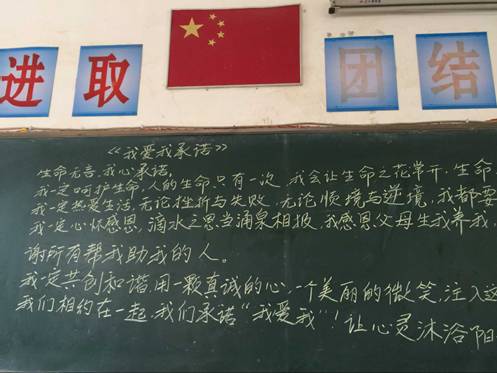 进取
团结
《我爱我承诺》
生命无言，我心承诺。
我一定呵护生命，人的生命只有一次，我会让生命之花常开，生命
我一定热爱生活，无论挫折与失败，无论顺境与逆境，我都要
我一定心怀感恩，滴水之恩当涌泉相报，我感恩父母生我养我，
谢所有帮我助我的人。
我一定共创和谐，用一颗真诚的心，一个美丽的微笑，注入这
我们相约在一起，我们承诺“我爱我”！让心灵沐浴阳